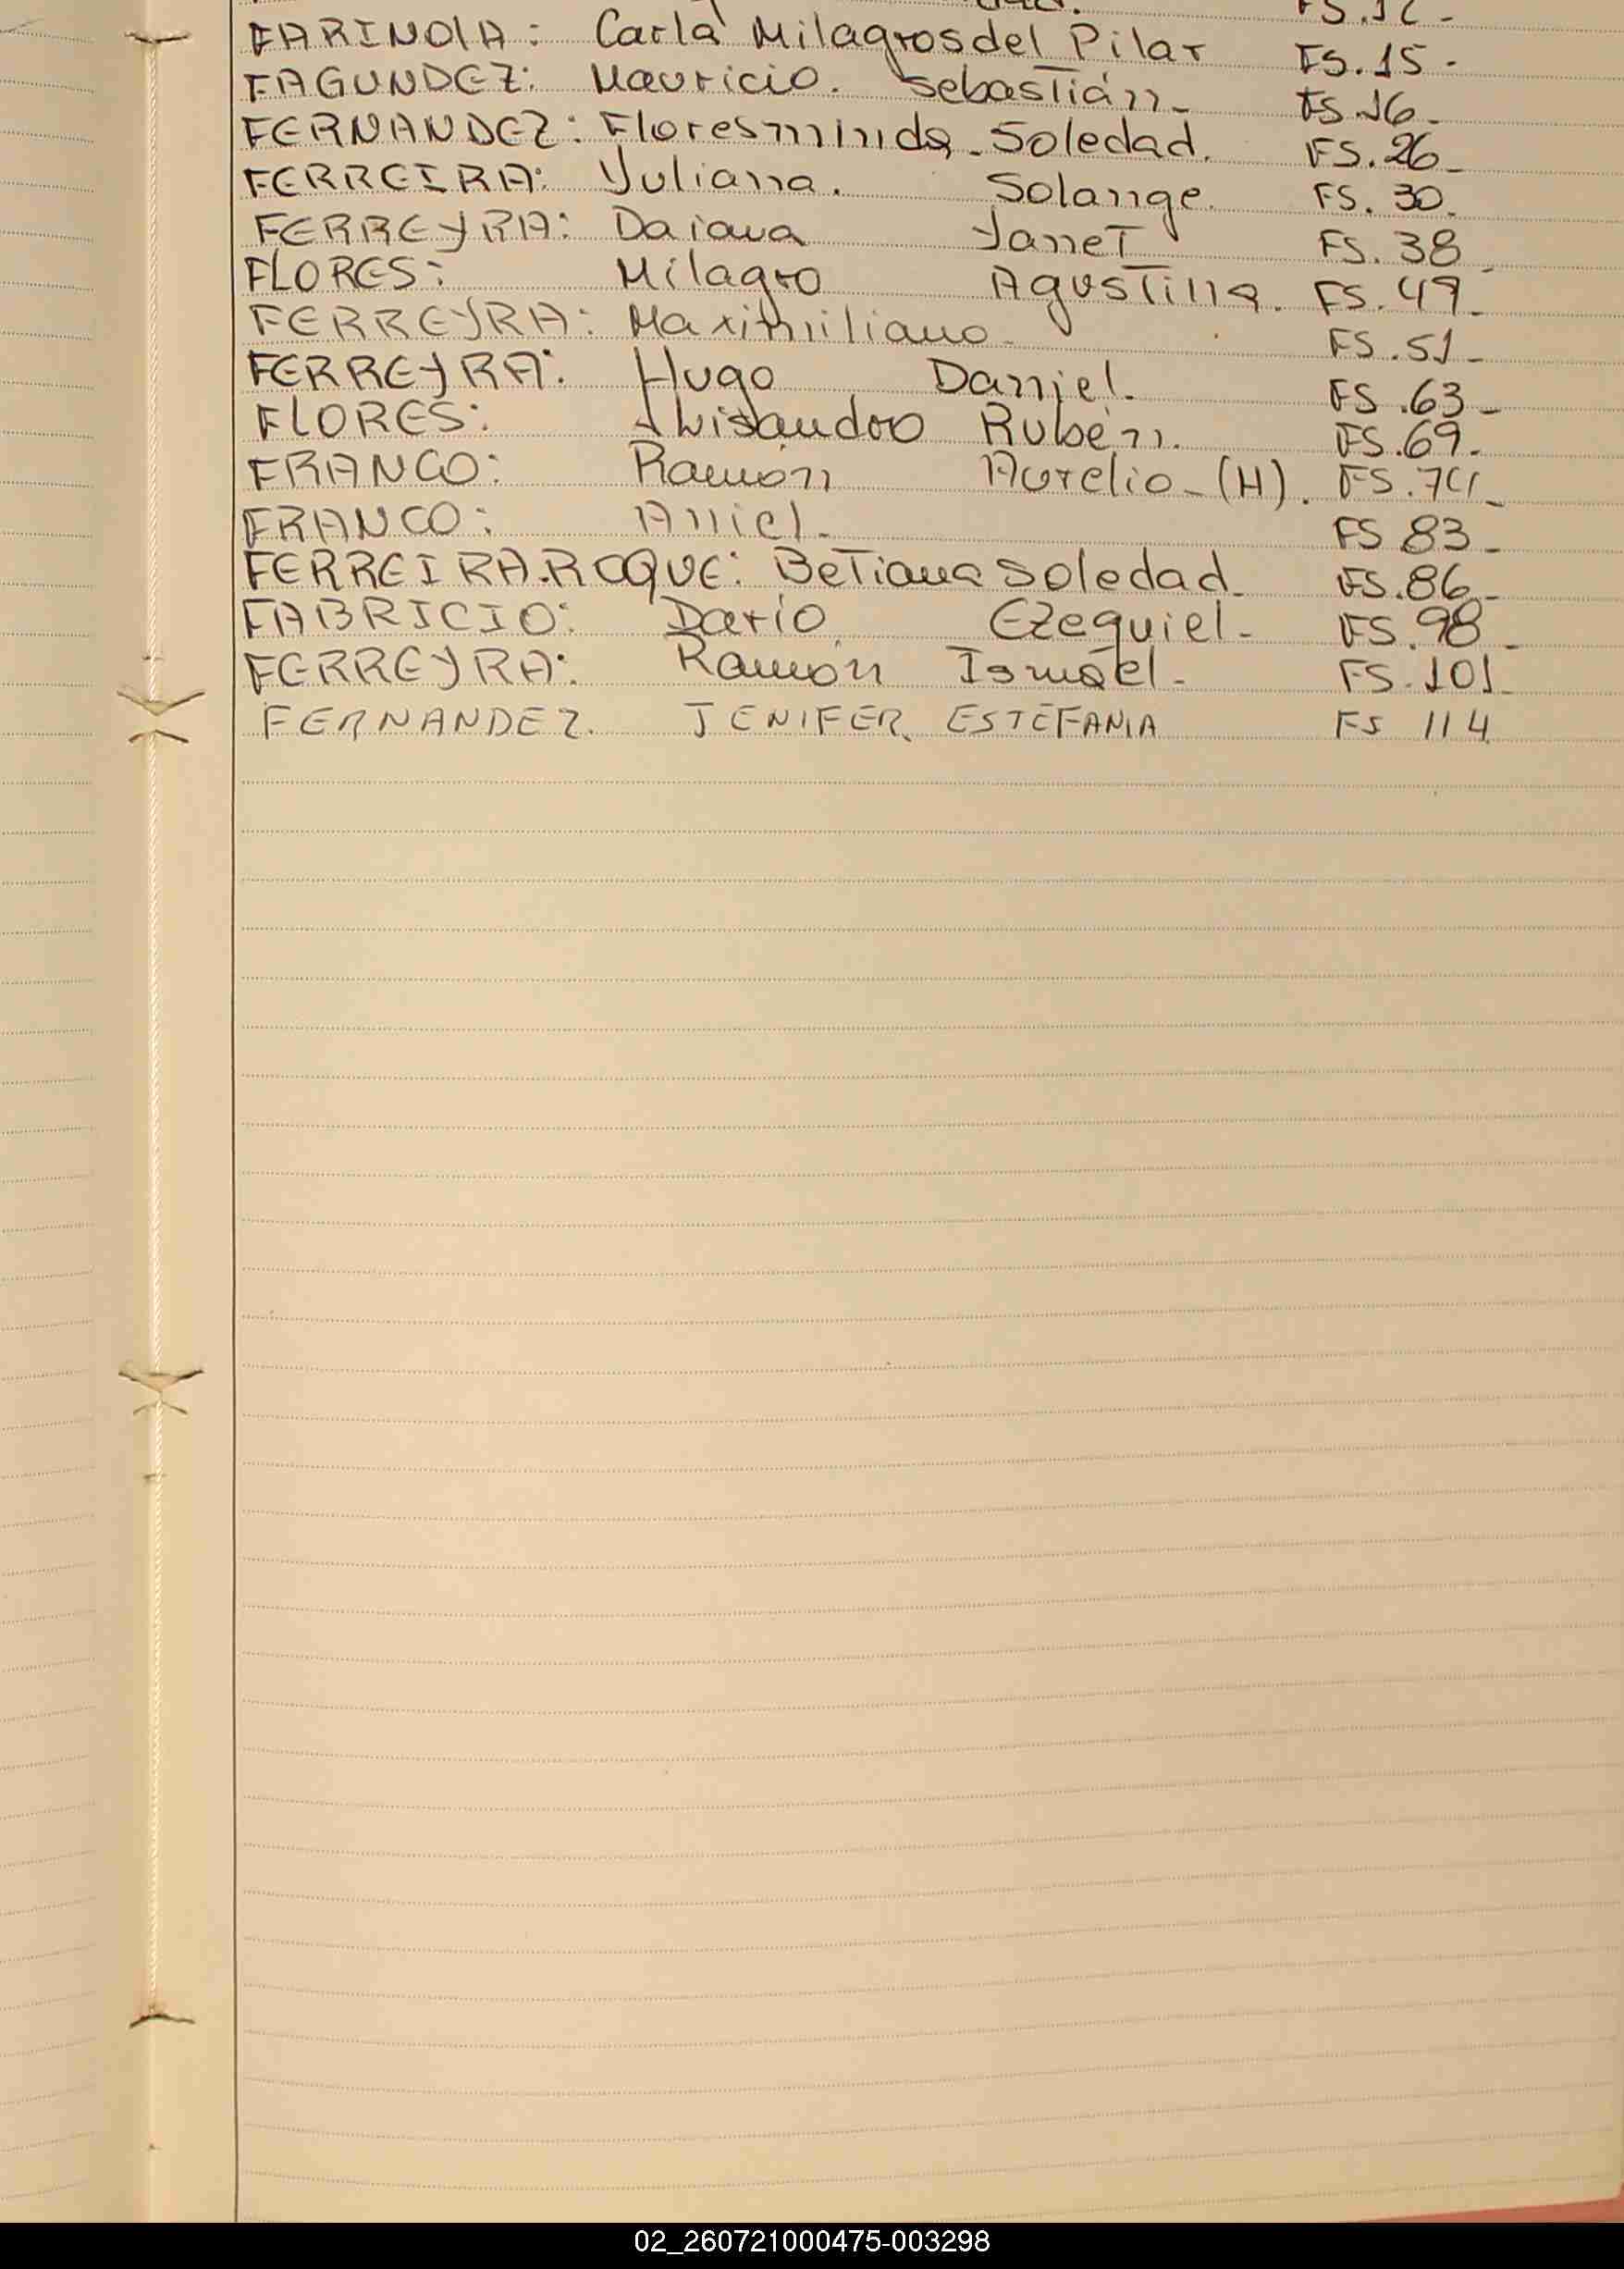 FS.12-
FARINOlA: Carla Milagros del Pilar FS.15-
FAGUNDEZ: Mauricio. Sebastián- FS.16-
FERNANDEZ: Floresminda-Soledad. FS.26-
FERREIRA: Yuliana. Solange. FS.30.
FERREYRA: Daiana Yanet FS.38-
FLORES: Milagro Agustina. FS.49-
FERREYRA: Maximiliano- FS.51-
FERREYRA: Hugo Daniel. FS.63-
FLORES: Rubén. FS.69.
FRANCO: Ramón Aurelio-(H). FS.74-
FRANCO: FS 83-
FERREIRA.ROQUE: Betiana Soledad- FS.86-
FABRICIO: Darío Ezequiel- FS.98-
FERREYRA: Ramón Ismael- FS.101-
FERNANDEZ. JENIFER ESTEFANIA FS 114
02_260721000475-003298